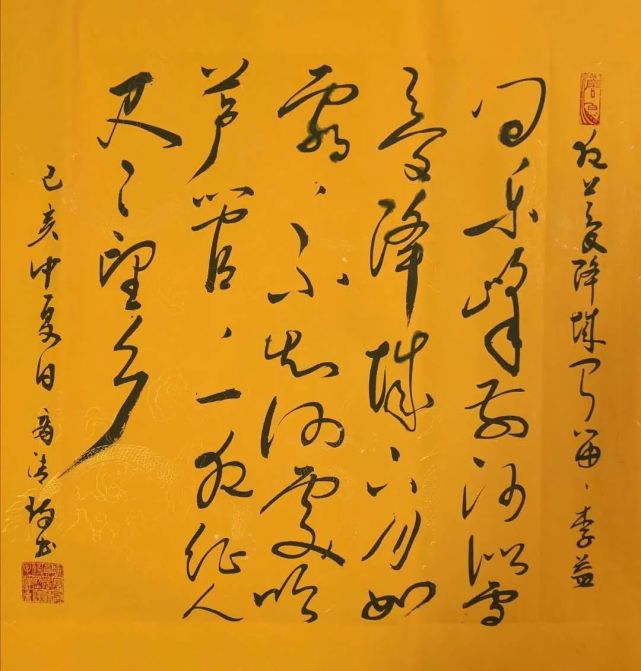 夜上受降城闻笛、李益
回乐峰前沙似雪
受降城下月如
霜、不知何处吹
芦管、一夜征人
尽望乡
己亥仲夏日 高清书